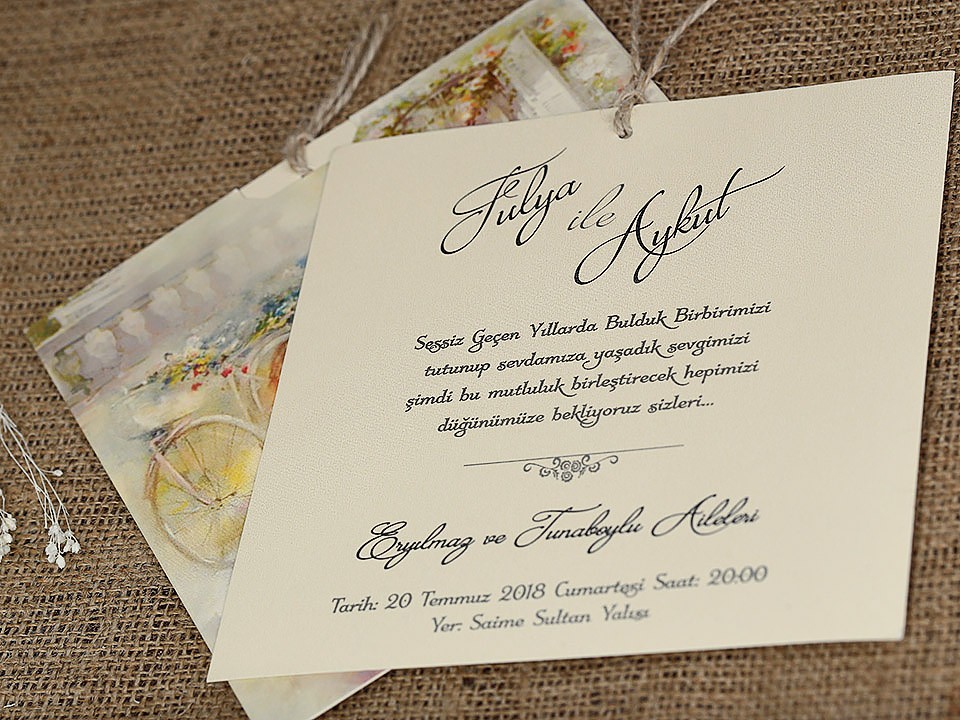 Fulya ile Aykut
Sessiz Geçen Yıllarda Bulduk Birbirimizi
tutunup sevdamıza yaşadık sevgimizi
şimdi bu mutluluk birleştirecek hepimizi
düğünümüze bekliyoruz sizleri...
Eryılmaz ve Tunaboylu Aileleri
Tarih: 20 Temmuz 2018 Cumartesi Saat: 20:00
Yer: Saime Sultan Yalısı